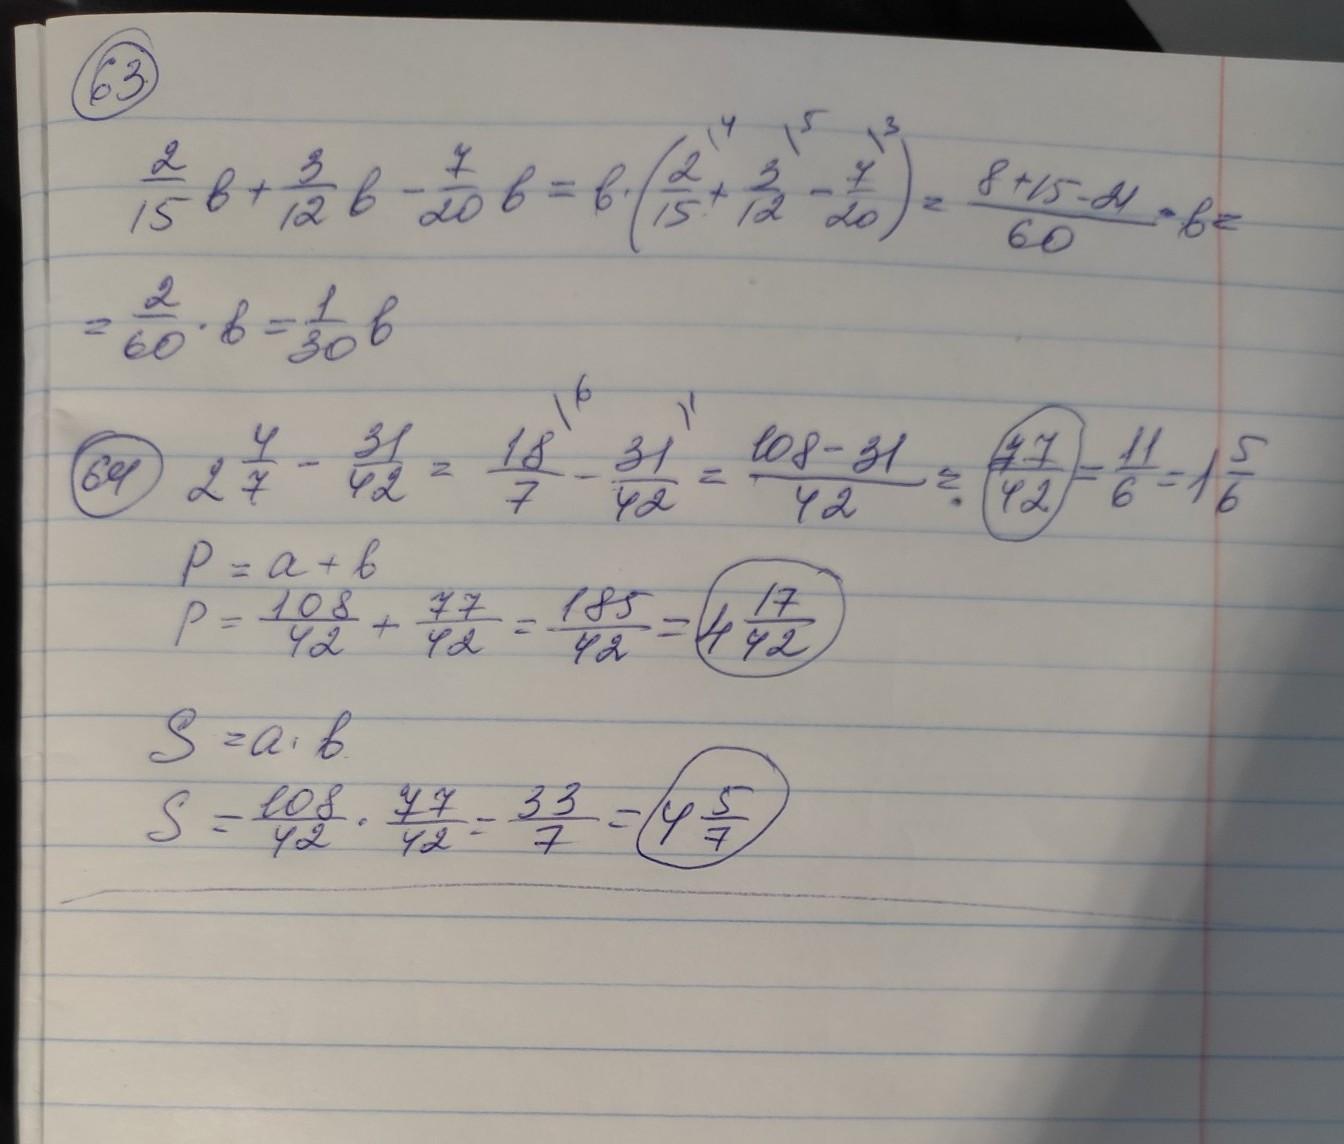 63
2/15 в + 3/12 в - 7/20 в = в · (2/15 \4 + 3/12 \5 - 7/20 \3) = (8+15-21)/60 · в =
= 2/60 · в = 1/30 в
64 2 4/7 - 31/42 = 18/7 \6 - 31/42 \1 = (108-31)/42 = 77/42 = 11/6 = 1 5/6
P = a + в
P = 108/42 + 77/42 = 185/42 = 4 17/42
S = a · в
S = 108/42 · 77/42 = 33/7 = 4 5/7